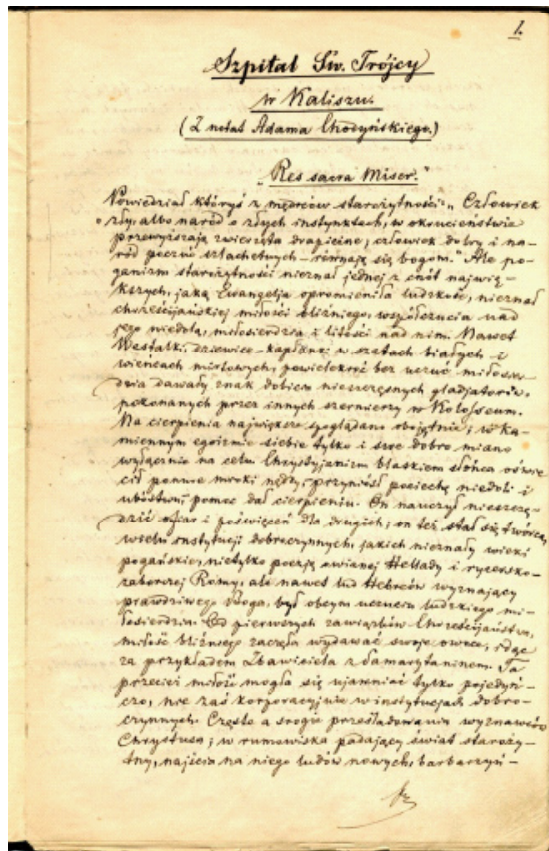 1.
Szpital Św. Trójcy
w Kaliszu.
(Z notat Adama Chodyńskiego.)
„Res sacra Miser."
Powiedział któryś z mędrców starożytności „Człowiek
zły, albo naród o złych instynktach, w okrucieństwie
przewyższają zwierzęta drapieżne, człowiek dobry i na-
ród poczuć szlachetnych – równają się bogom." Ale po-
ganizm starożytności nieznał jednej z cnót najwię-
kszych, jaką Ewangelja opromieniła ludzkość, nieznał
chrześcijańskiej miłości bliźniego, współczucia nad
jego niedolą, miłosierdzia i litości nad nim. Nawet
Westalki, dziewice – kapłanki w szatach białych i
wieńcach mirtowych, powielekroć bez uczuć miłosier-
dzia dawały znak dobicia nieszczęsnych gladjatorów,
pokonanych przez innych szermierzy w Kolosseum.
Na cierpienia największe spoglądano obojętnie; w ka-
miennym egoizmie siebie tylko i swe dobro miano
wyłącznie na celu. Chrystyjanizm blaskiem słońca oświe
cił ponure mroki nędzy, przyniósł pociechę niedoli i
ubóstwu, pomoc dał cierpieniu. On nauczył nieszczę-
dzić ofiar i poświęceń dla drugich; on też stał się twórcą
wielu instytucji dobroczynnych, jakich nieznały wieki
pogańskie, nietylko poezją owianej Hellady i rycersko-
zaborczej Romy, ale nawet lud Hebreów wyznający
prawdziwego Boga, był obcym uczuciu ludzkiego mi-
łosierdzia. Od pierwszych zawiązków Chrześcijaństwa,
miłość bliźniego zaczęła wydawać swoje owoce, idąc
za przykładem Zbawiciela z Samarytaninem. Ta
przecież miłość mogła się ujawniać tylko pojedyń-
czo, nie zaś korporacyjnie w instytucjach dobro-
czynnych. Częste a srogie prześladowania wyznawców
Chrystusa; w rumowiska padający świat staroży-
tny, najścia na niego ludów nowych, barbarzyń-